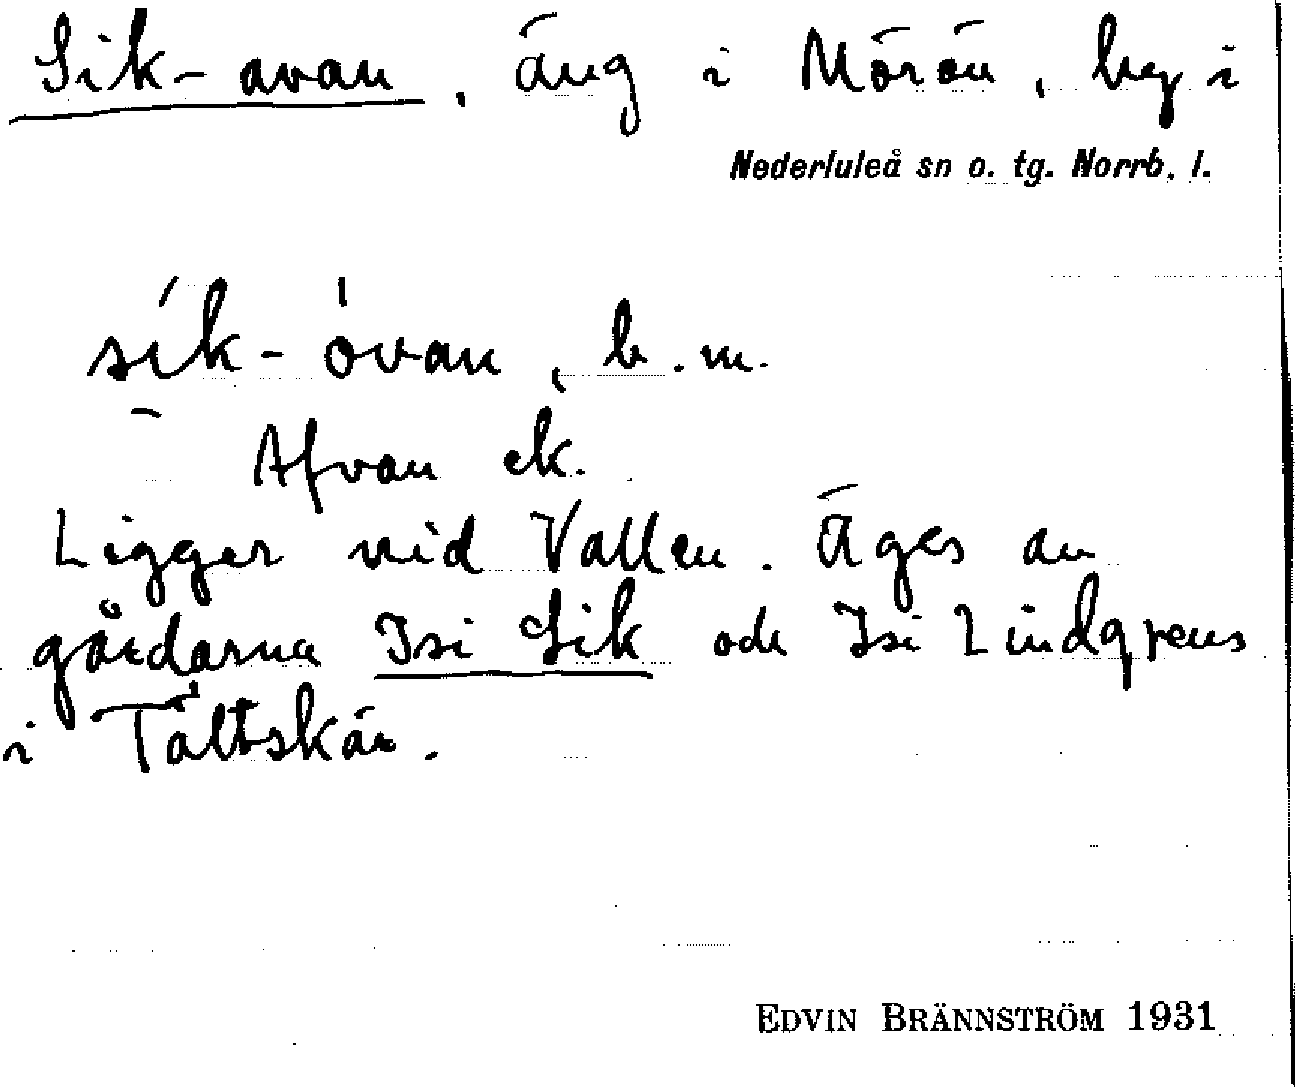 Sik-avan, äng i Mörön, by i
Nederluleå sn o. tg. Norrb. l.
sík-óvan, b.m.
Afvan ek.
Ligger vid Vallen. Äges av
gårdarna Isi Sik och Isi Lindgrens
i Tältskär.
EDVIN BRÄNNSTRÖM 1931